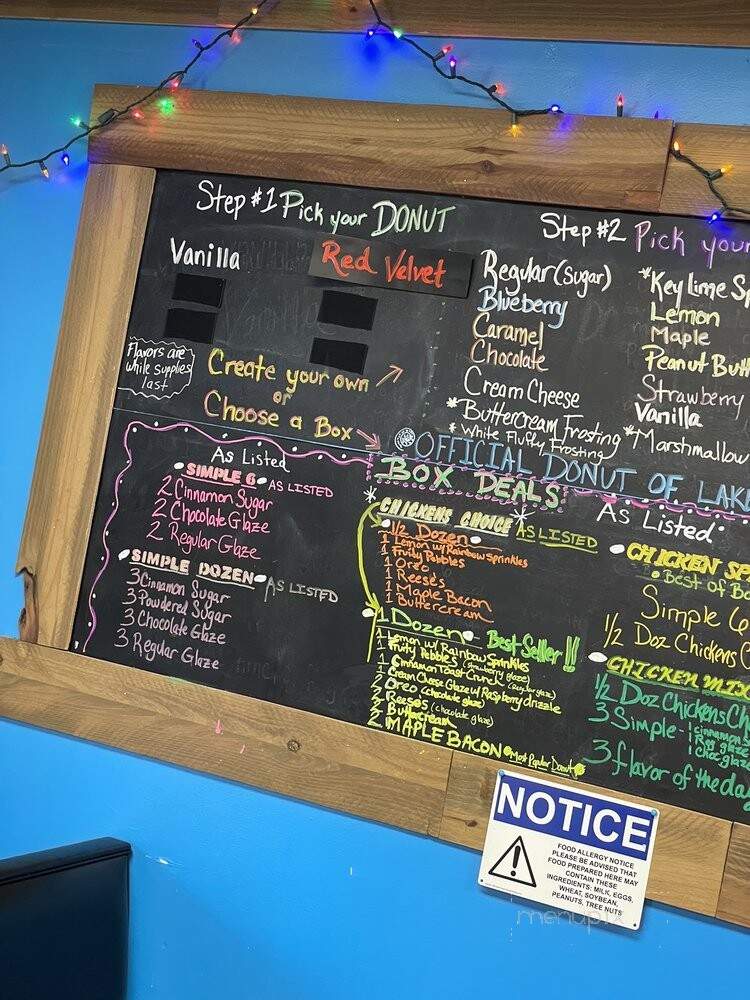 Step #1 Pick your DONUT
Vanilla
Red Velvet
Flavors are
while supplies
last
Create your own
or
Choose a Box
Step #2 Pick your
Regular (sugar)
Blueberry
Caramel
Chocolate
Cream Cheese
*Buttercream Frosting
*White Fluffy Frosting
*Key Lime
Lemon
Maple
Peanut
Strawberry
Vanilla
*Marshmallow
OFFICIAL DONUT OF
BOX DEALS
As Listed
SIMPLE 6 AS LISTED
2 Cinnamon Sugar
2 Chocolate Glaze
2 Regular Glaze
SIMPLE DOZEN AS LISTED
3 Cinnamon Sugar
3 Powdered Sugar
3 Chocolate Glaze
3 Regular Glaze
CHICKENS CHOICE AS LISTED
1/2 Dozen
1 Lemon w/ Rainbow Sprinkles
1 Fruity Pebbles
1 Oreo
1 Reese's
1 Maple Bacon
1 Buttercream
1 Dozen Best Seller!!
1 Lemon w/ Rainbow Sprinkles
1 Fruity Pebbles (strawberry glaze)
1 Cinnamon Toast Crunch (Regular glaze)
1 Cream Cheese Glaze w/ Raspberry drizzle
2 Oreo (chocolate glaze)
2 Reeses (chocolate glaze)
2 Buttercream
2 MAPLE BACON Most Popular Donut
As Listed
CHICKEN
Best of
Simple 6
1/2 Doz Chickens
CHICKEN
1/2 Doz Chickens
3 Simple - 1 cinnamon
1 Reg glaze
1 Choc glaze
3 flavor of the day
NOTICE
FOOD ALLERGY NOTICE
PLEASE BE ADVISED THAT
FOOD PREPARED HERE MAY
CONTAIN THESE
INGREDIENTS: MILK, EGGS,
WHEAT, SOYBEAN,
PEANUTS, TREE NUTS
menupix